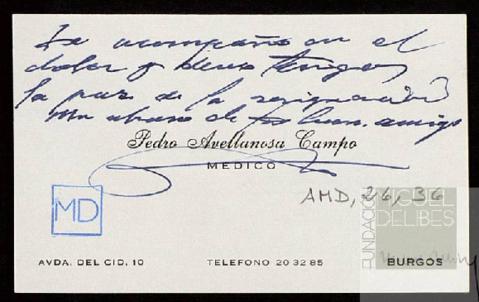 Le acompaño en el
dolor y deseo tengas
la paz de la resignación
Un abrazo de tu buen amigo
Pedro Avellanosa Campo
MEDICO
MD
AMD, 26, 36
AVDA. DEL CID, 10 TELEFONO 20 32 85 BURGOS
FUNDACIÓN MIGUEL DELIBES